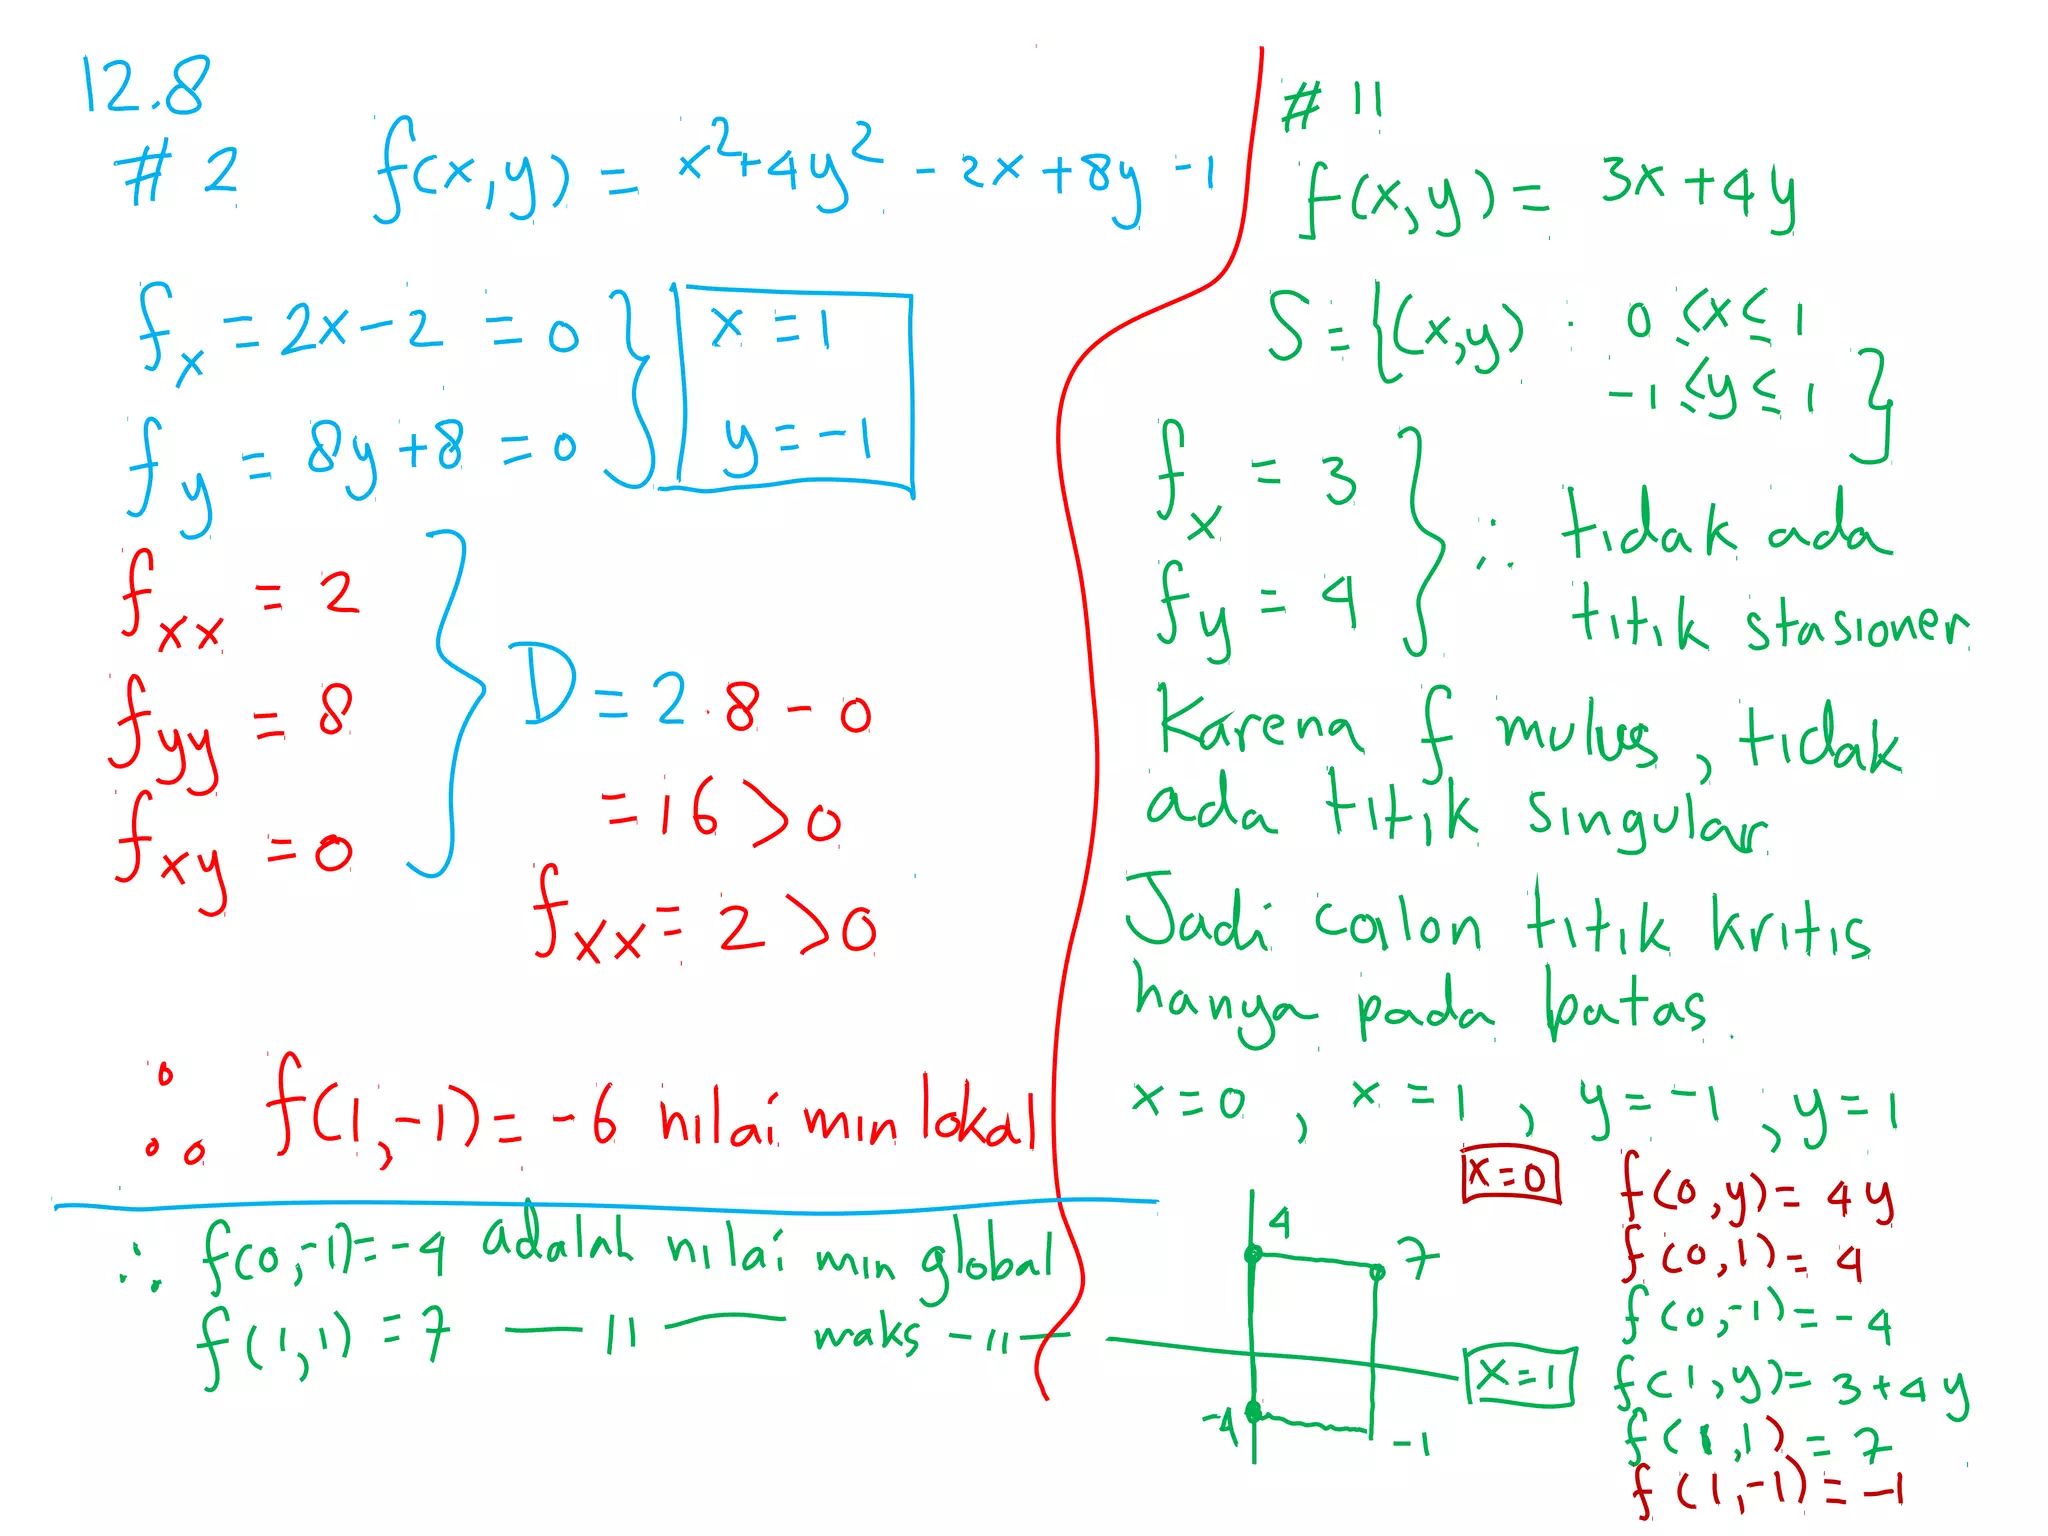 12.8
# 2 f(x,y) = x²+4y² - 2x+8y -1
f_x = 2x-2 = 0 } x = 1
f_y = 8y+8 = 0 } y = -1
f_xx = 2
f_yy = 8
f_xy = 0
D = 2.8 - 0
= 16 > 0
f_xx = 2 > 0
∴ f(1,-1) = -6 nilai min lokal
∴ f(0,-1) = -4 adalah nilai min global
f(1,1) = 7 — 11 — maks - 11 -
# 11
f(x,y) = 3x+4y
S = {(x,y) : 0 ≤ x ≤ 1
-1 ≤ y ≤ 1 }
f_x = 3
f_y = 4
} ∴ tidak ada
titik stasioner
Karena f mulus, tidak
ada titik singular.
Jadi calon titik kritis
hanya pada batas.
x=0, x=1, y=-1, y=1
x=0 f(0,y) = 4y
f(0,1) = 4
f(0,-1) = -4
x=1 f(1,y) = 3+4y
f(1,1) = 7
f(1,-1) = -1
4 7
-4 -1